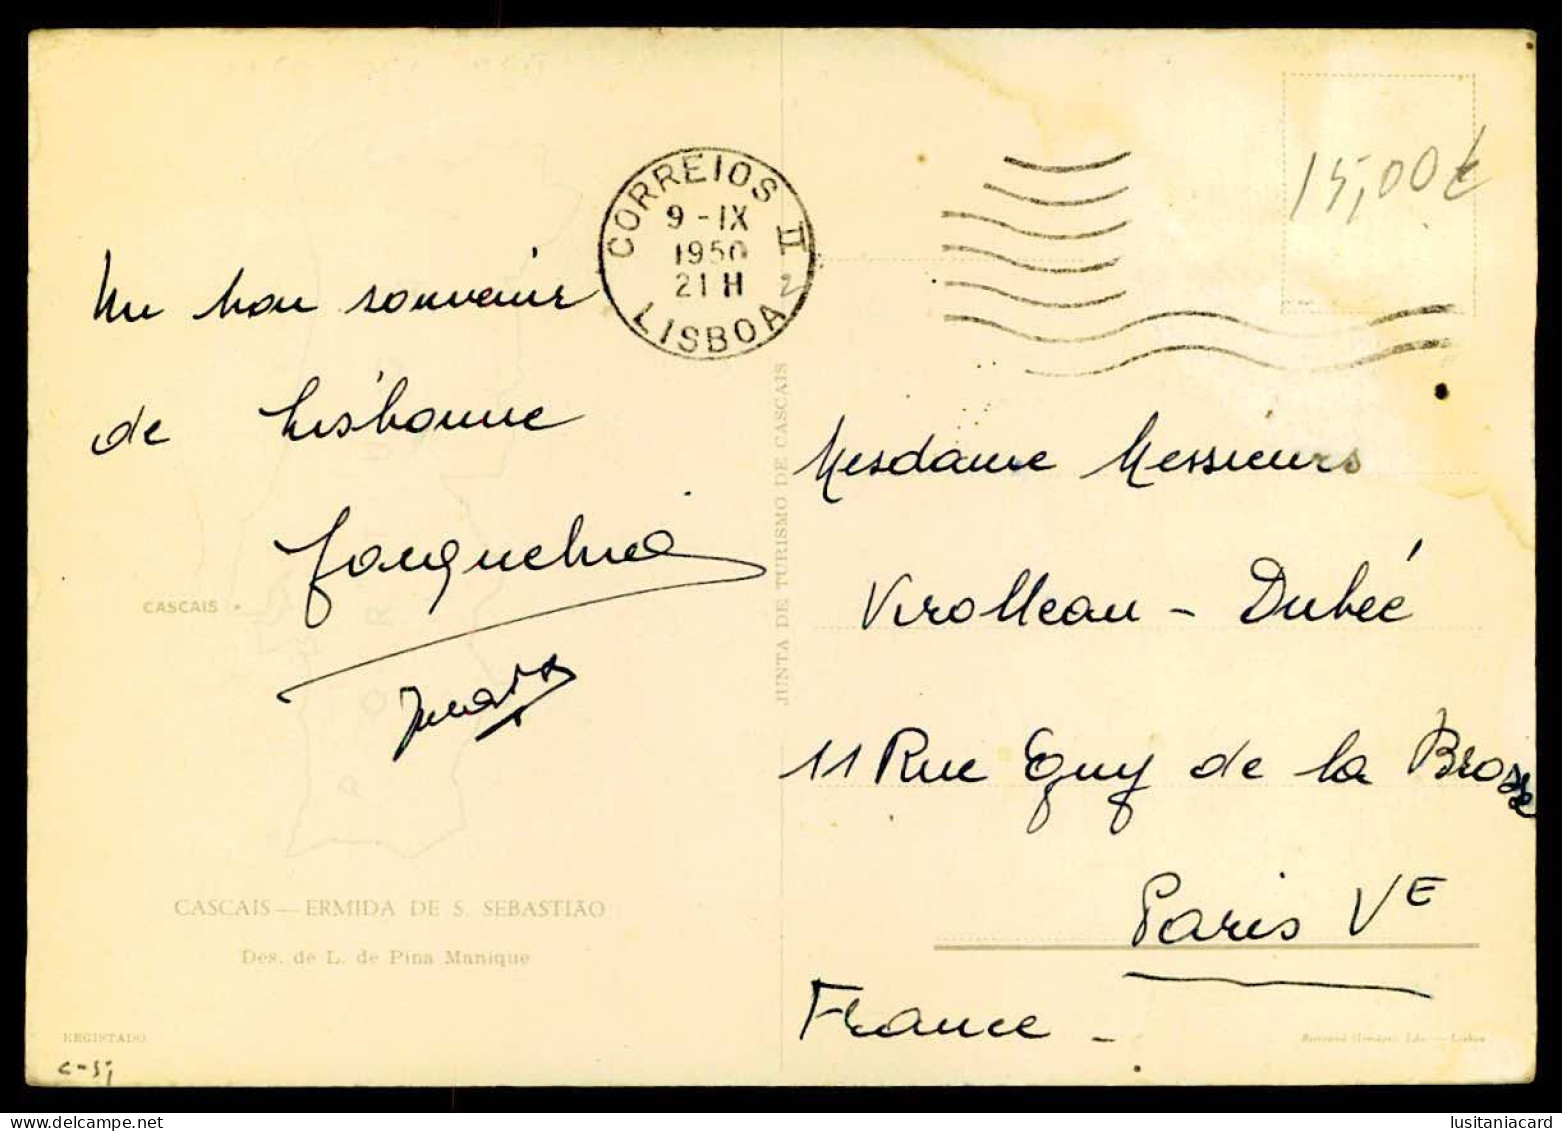 CORREIOS II
9 - IX
1950
21 H
2
LISBOA
15,00 €
Un bon souvenir
de Lisbonne
Jacqueline
CASCAIS
PORTUGAL
CASCAIS — ERMIDA DE S. SEBASTIÃO
Des. de L. de Pina Manique
REGISTADO
JUNTA DE TURISMO DE CASCAIS
Mesdame Messieurs
Virolleau - Dubéé
11 Rue Guy de la Brosse
Paris VE
France -
Lisboa
www.delcampe.net
lusitaniacard